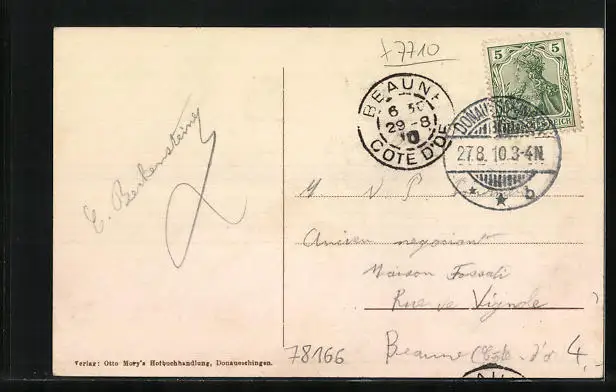 +7710
5 5
REICH
BEAUNE
6 30
29-8
10
COTE D'OR
DONAUESCHINGEN
27.8.10.3-4N.
* * b
E. Beckensteiner
M. V. P.
Ancien negociant
Maison Fossati
Rue de Vignole
Beaune (Côte d'or
4.
78166
Verlag: Otto Mory's Hofbuchhandlung, Donaueschingen.